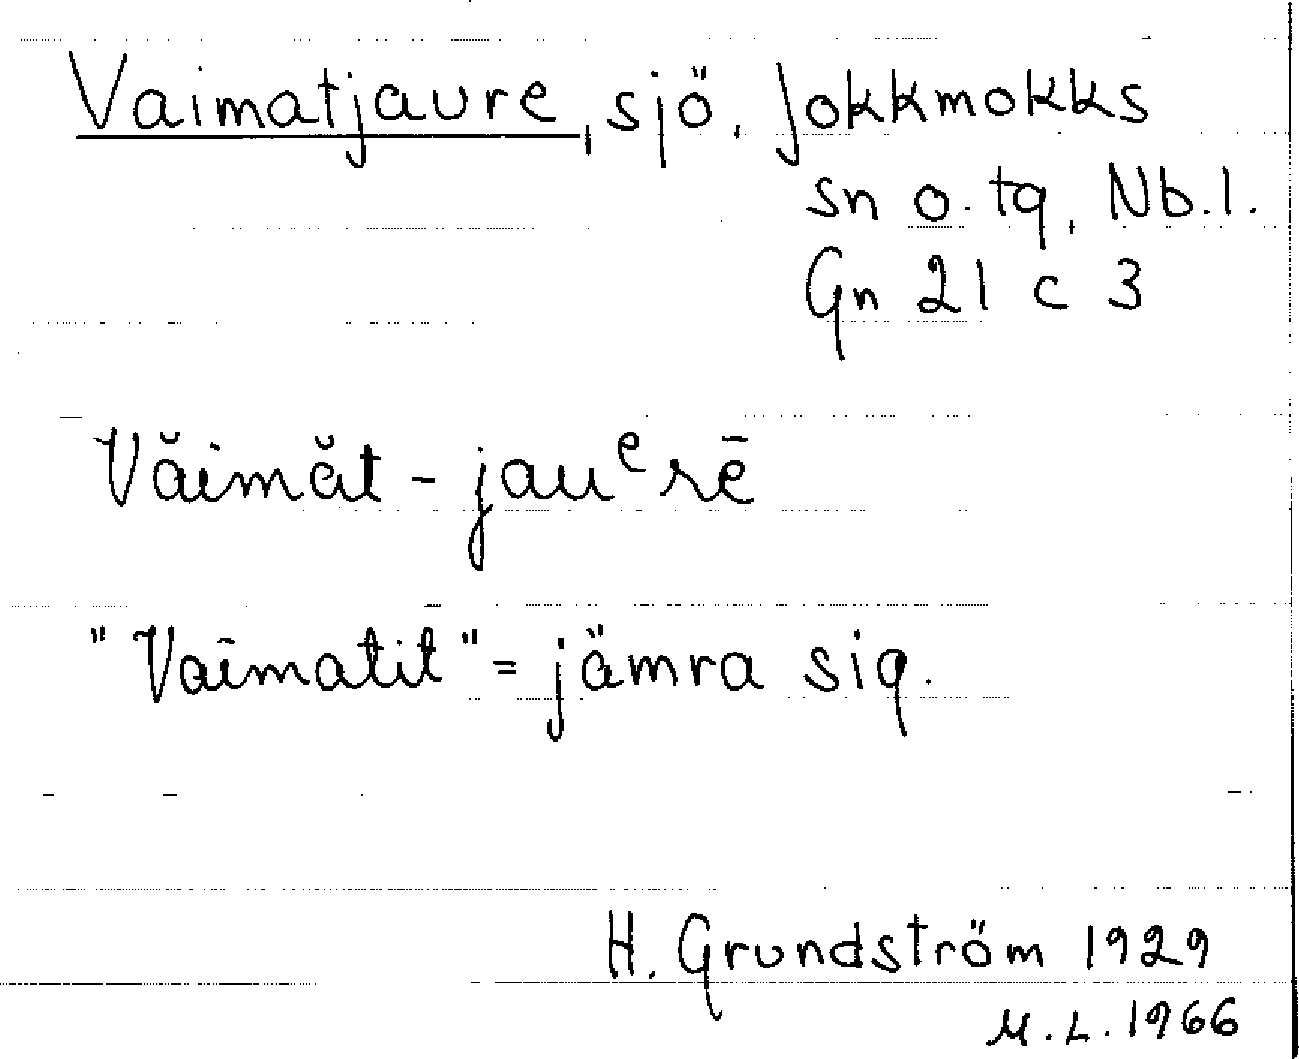 Vaimatjaure, sjö, Jokkmokks
sn o. tg, Nb.l.
Gn 21 c 3
Văimăt-jauᵉrē
"Vaimatit" = jämra sig.
H. Grundström 1929
M.L. 1966